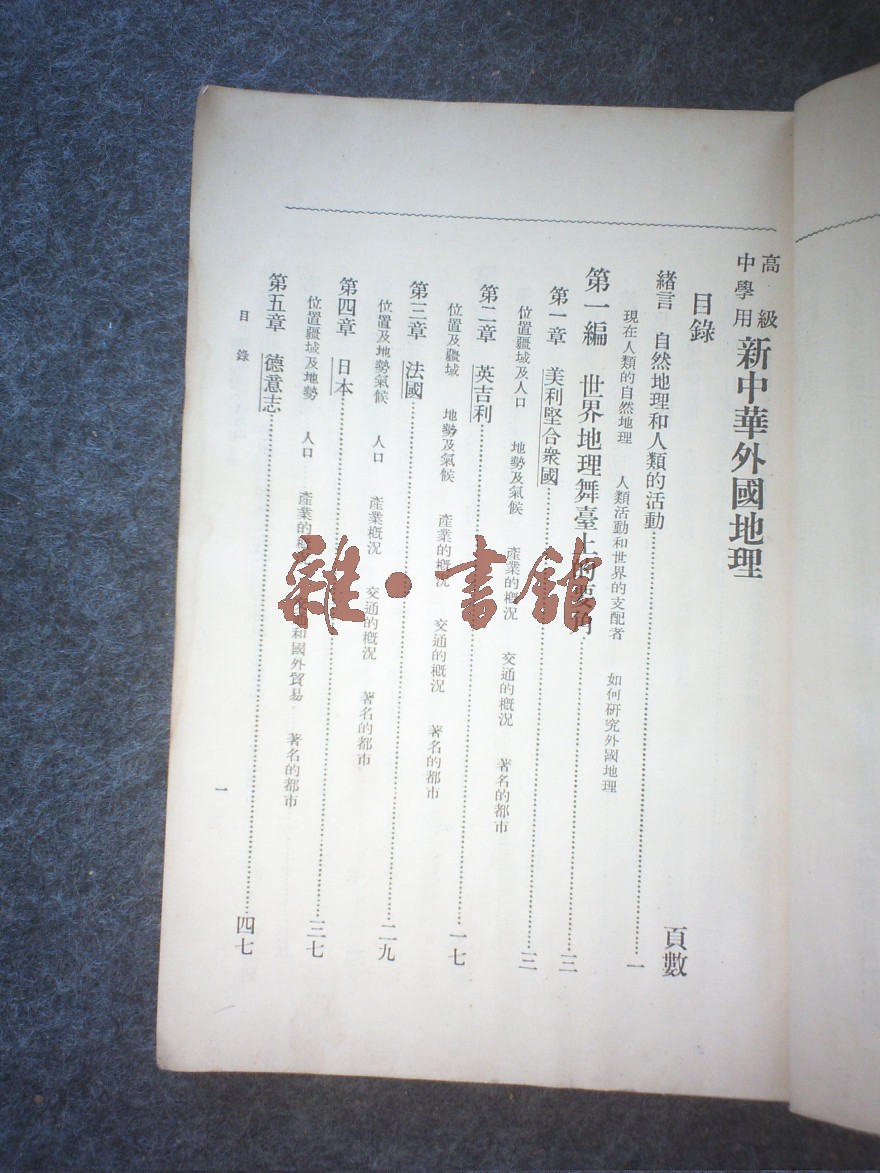 高級中學用 新中華外國地理
目錄
頁數
緒言 自然地理和人類的活動 一
現在人類的自然地理 人類活動和世界的支配者 如何研究外國地理
第一編 世界地理舞臺上的要角 三
第一章 美利堅合衆國 三
位置疆域及人口 地勢及氣候 產業的概況 交通的概況 著名的都市
第二章 英吉利 一七
位置及疆域 地勢及氣候 產業的概況 交通的概況 著名的都市
第三章 法國 二九
位置及地勢氣候 人口 產業概況 交通的概況 著名的都市
第四章 日本 三七
位置疆域及地勢 人口 產業的概況 交通和國外貿易 著名的都市
第五章 德意志 四七
目錄
一
雜·書館